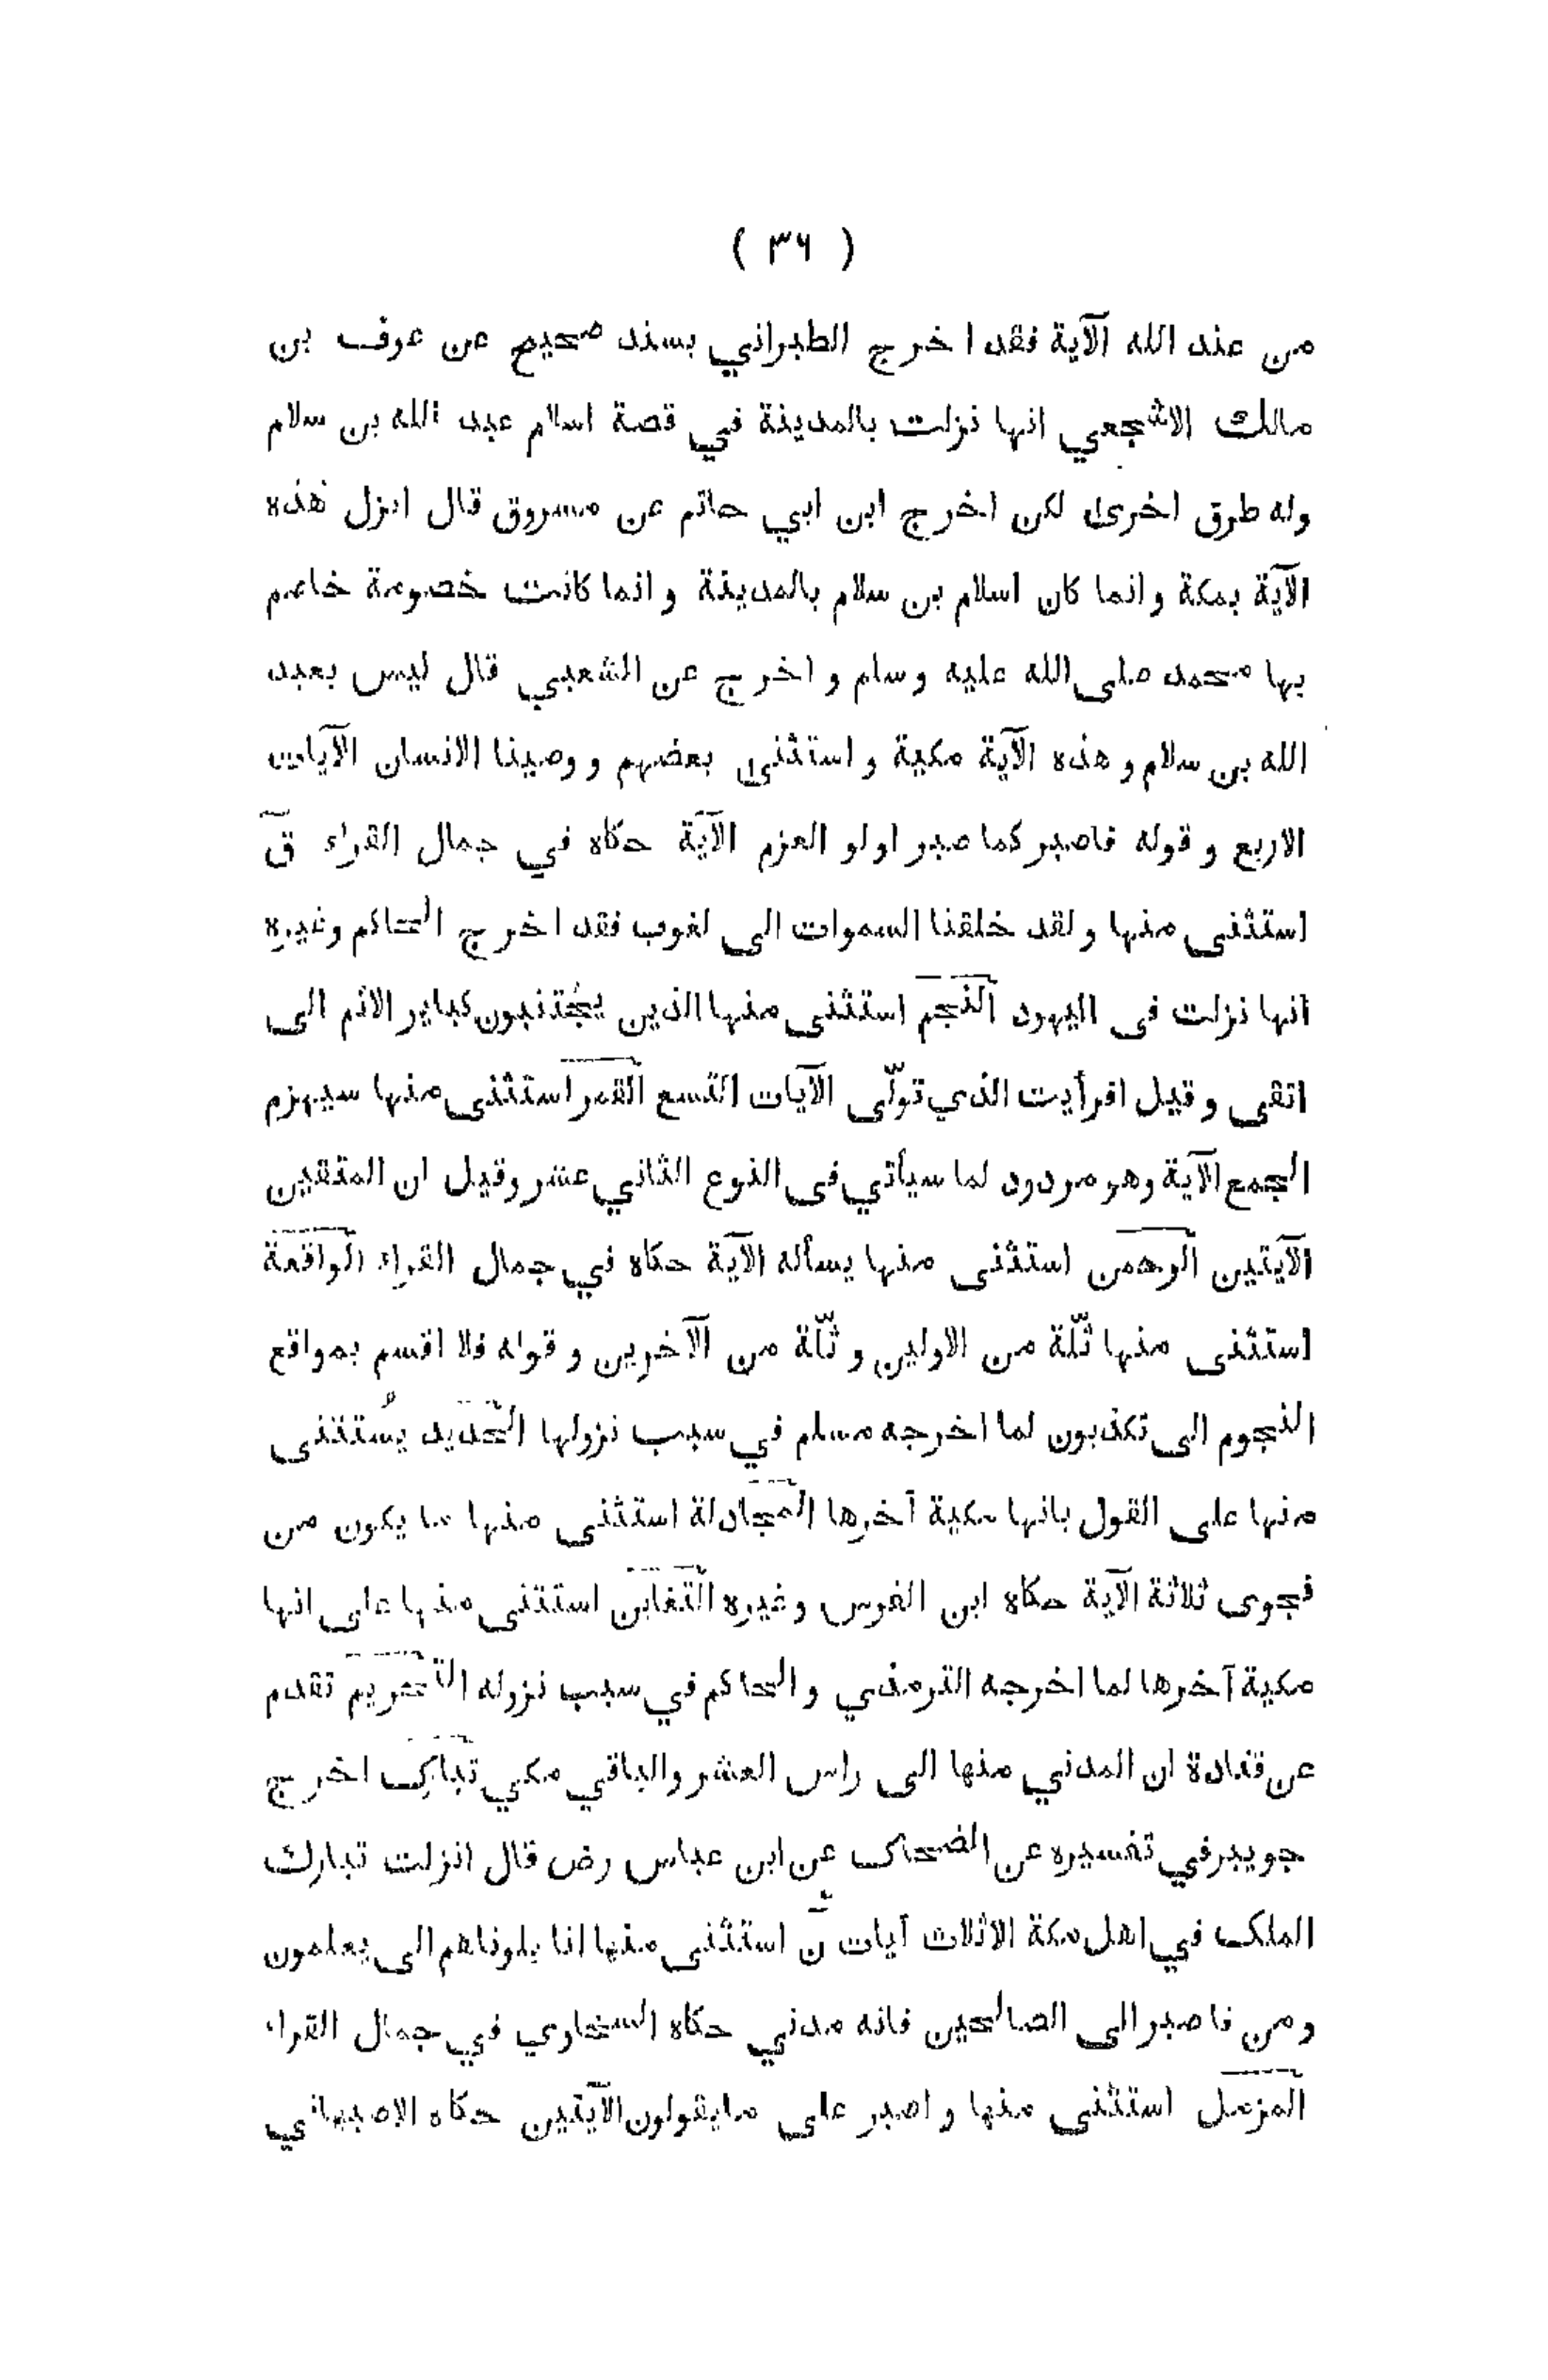 ( ٣٦ )
من عند الله الآية فقد اخرج الطبراني بسند صحيح عن عوف بن
مالك الاشجعي انها نزلت بالمدينة في قصة اسلام عبد الله بن سلام
وله طرق اخرى لكن اخرج ابن ابي حاتم عن مسروق قال انزل هذه
الآية بمكة وانما كان اسلام بن سلام بالمدينة و انما كانت خصومة خاصم
بها محمد صلى الله عليه وسلم و اخرج عن الشعبي قال ليس بعبد
الله بن سلام و هذه الآية مكية و استثنى بعضهم و وصينا الانسان الآيات
الاربع و قوله فاصبر كما صبر اولو العزم الآية حكاه في جمال القراء ق
استثنى منها و لقد خلقنا السموات الى لغوب فقد اخرج الحاكم وغيره
انها نزلت فى اليهود النجم استثنى منها الذين يجتنبون كباير الاثم الى
اتقى و قيل افرأيت الذي تولّى الآيات التسع القمر استثنى منها سيهزم
الجمع الآية وهو مردود لما سيأتي فى النوع الثاني عشر وقيل ان المتقين
الآيتين الرحمن استثنى منها يسأله الآية حكاه في جمال القراء الواقعة
استثنى منها ثلّة من الاولين و ثلّة من الآخرين و قوله فلا اقسم بمواقع
النجوم الى تكذبون لما اخرجه مسلم في سبب نزولها الحديد يُستثنى
منها على القول بانها مكية آخرها المجادلة استثنى منها ما يكون من
نجوى ثلاثة الآية حكاه ابن الفرس وغيره التغابن استثنى منها على انها
مكية آخرها لما اخرجه الترمذي و الحاكم في سبب نزوله التحريم تقدم
عن قتادة ان المدني منها الى راس العشر والباقي مكي تبارك اخرج
جويبر في تفسيره عن الضحاك عن ابن عباس رض قال انزلت تبارك
الملك في اهل مكة الاثلاث آيات ن استثنى منها انا بلوناهم الى يعلمون
و من فاصبر الى الصالحين فانه مدني حكاه السخاوي في جمال القراء
المزمل استثنى منها و اصبر على ما يقولون الآيتين حكاه الاصبهاني